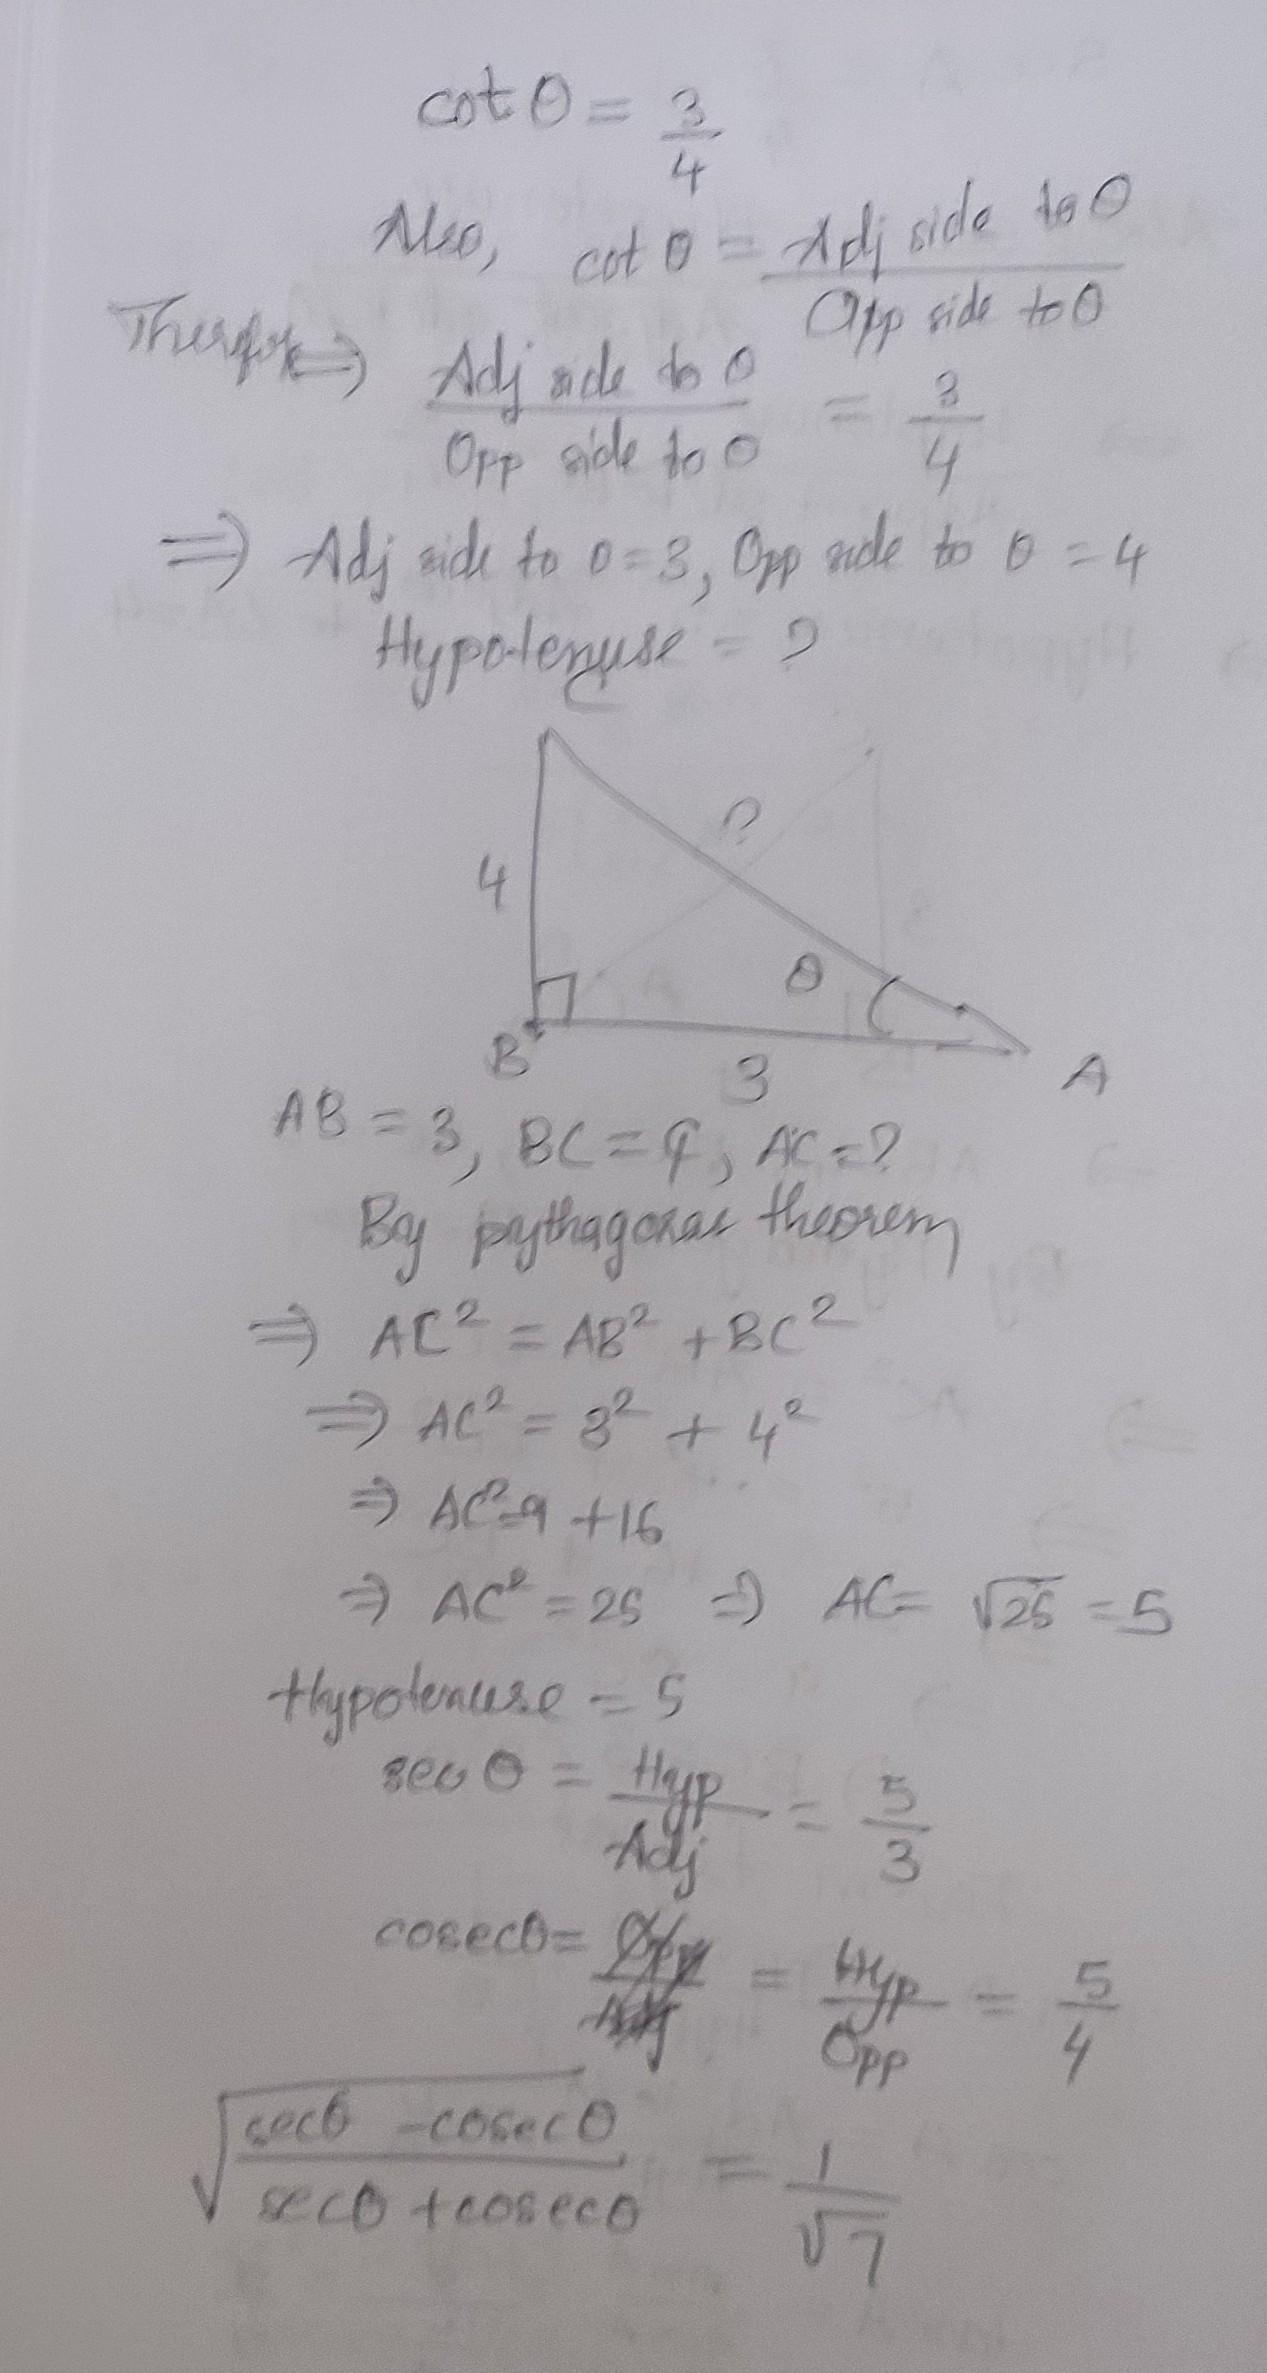 cot θ = 3/4
Also, cot θ = Adj side to θ / Opp side to θ
Therefore ⇒ Adj side to θ / Opp side to θ = 3/4
⇒ Adj side to θ = 3, Opp side to θ = 4
Hypotenuse = ?
C
?
4
θ
B
3
A
AB = 3, BC = 4, AC = ?
By pythagoras theorem
⇒ AC² = AB² + BC²
⇒ AC² = 3² + 4²
⇒ AC² = 9 + 16
⇒ AC² = 25 ⇒ AC = √25 = 5
Hypotenuse = 5
sec θ = Hyp/Adj = 5/3
cosec θ = = Hyp/Opp = 5/4
√(secθ - cosecθ / secθ + cosecθ) = 1/√7